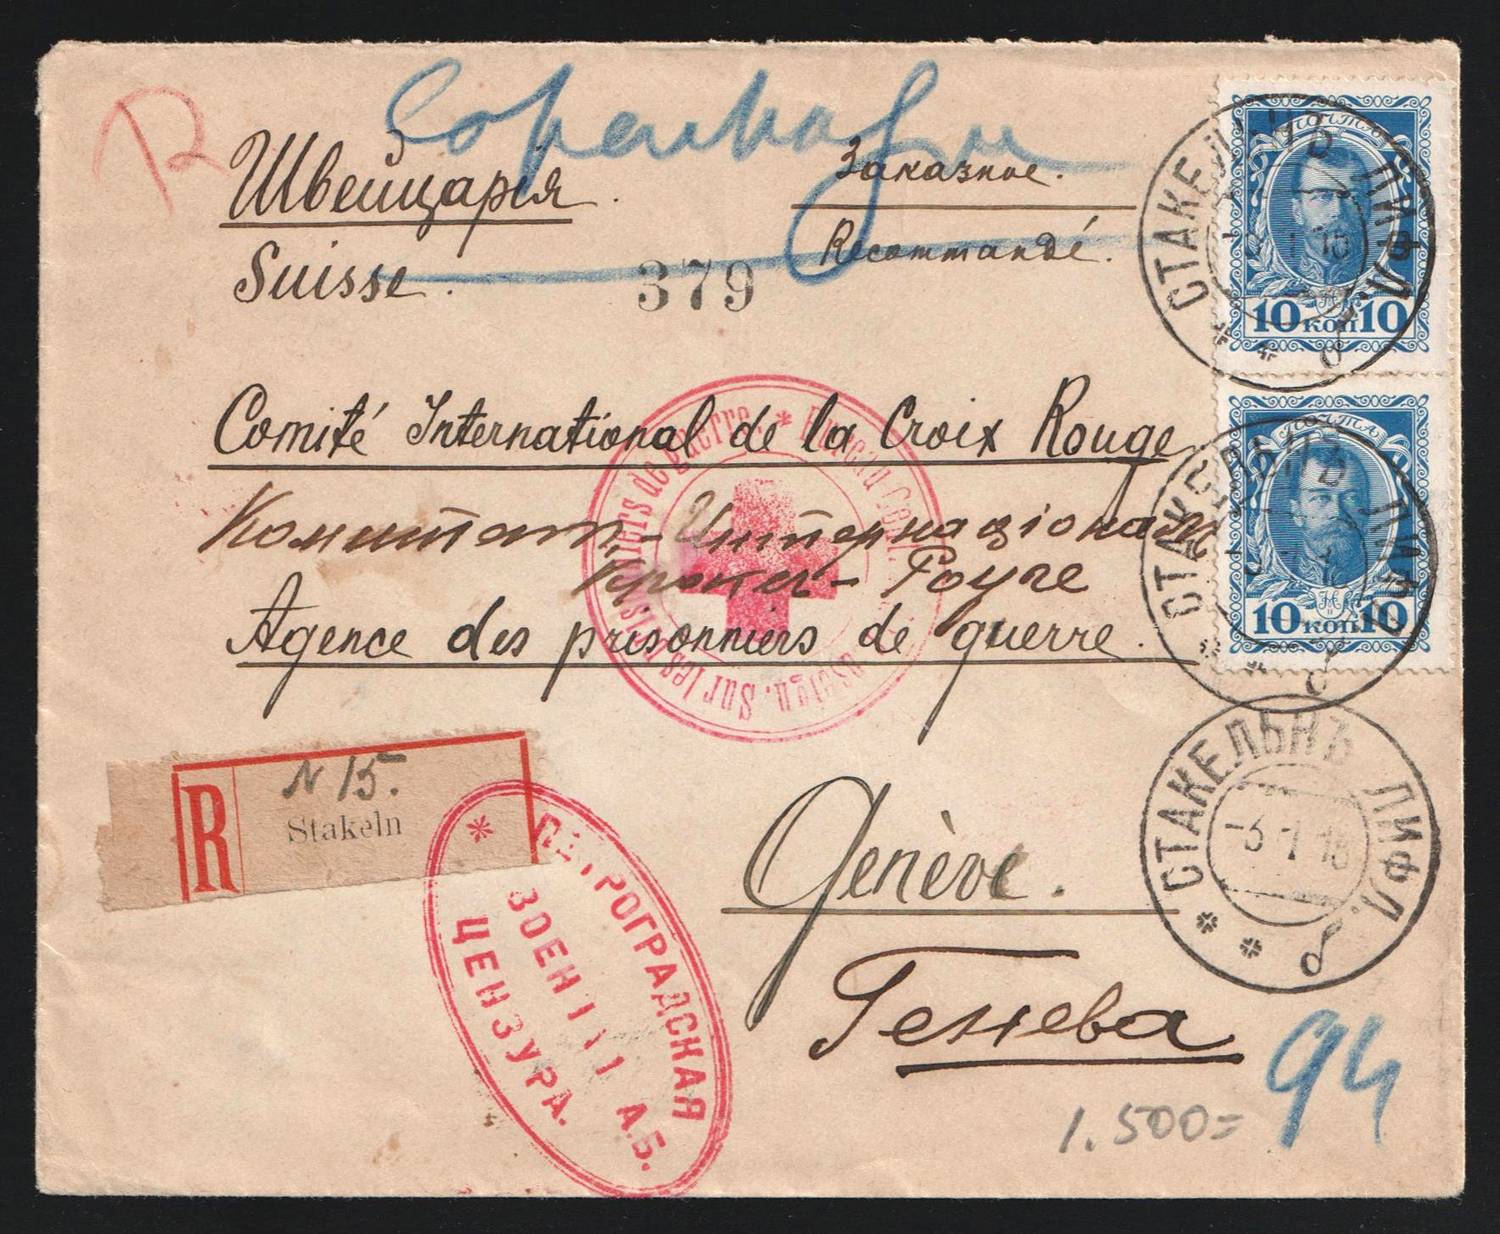 R
Copenhagen
Швейцарія.
Заказное.
Suisse.
Recommandé.
379
ПОЧТА
10 коп 10
СТАКЕЛЬНЪ ЛИФЛ. б
Comité International de la Croix Rouge
Комитат-Интернаціональ
Кроика-Роуге
Agence des prisonniers de guerre.
ПОЧТА
10 коп 10
СТАКЕЛЬНЪ ЛИФЛ. б
* Bureau Central
Sur les Prisonniers de guerre.
R
N 15.
Stakeln
СТАКЕЛЬНЪ ЛИФЛ. б
-3 1 15
Genève.
Генева
* ПЕТРОГРАДСКАЯ
ВОЕН
ЦЕНЗУРА.
А.Б.
94
1.500=